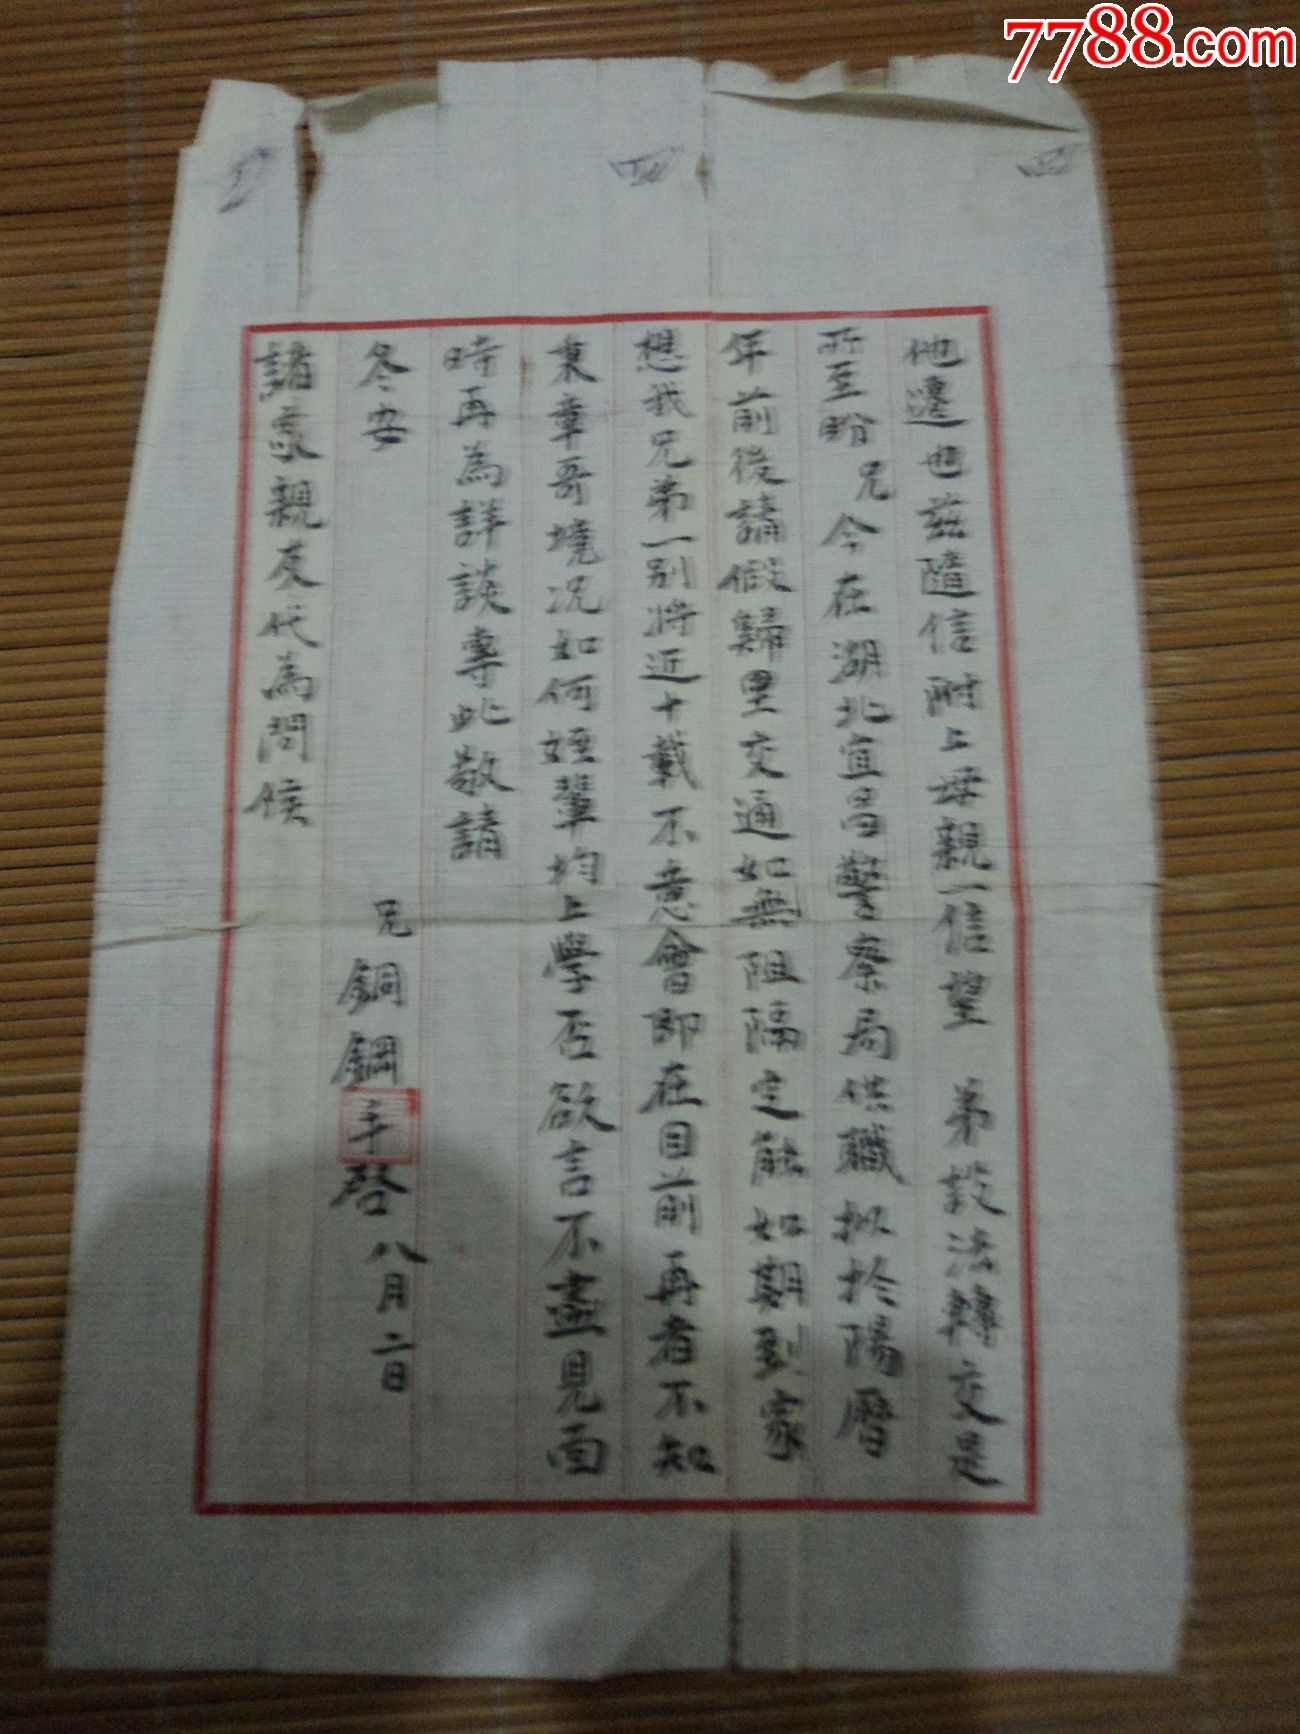 7788.com
他遷也茲隨信附上母親一信望 弟設法轉交是
所至盼兄今在湖北宜昌警察局供職擬於陽曆
年前後請假歸里交通如無阻隔定能如期到家
想我兄弟一別將近十載不意會即在目前再者不知
東章哥境况如何姪輩均上學否欲言不盡見面
時再為詳談專此敬請
冬安
兄銅鋼手啓八月二日
諸親友代為問候